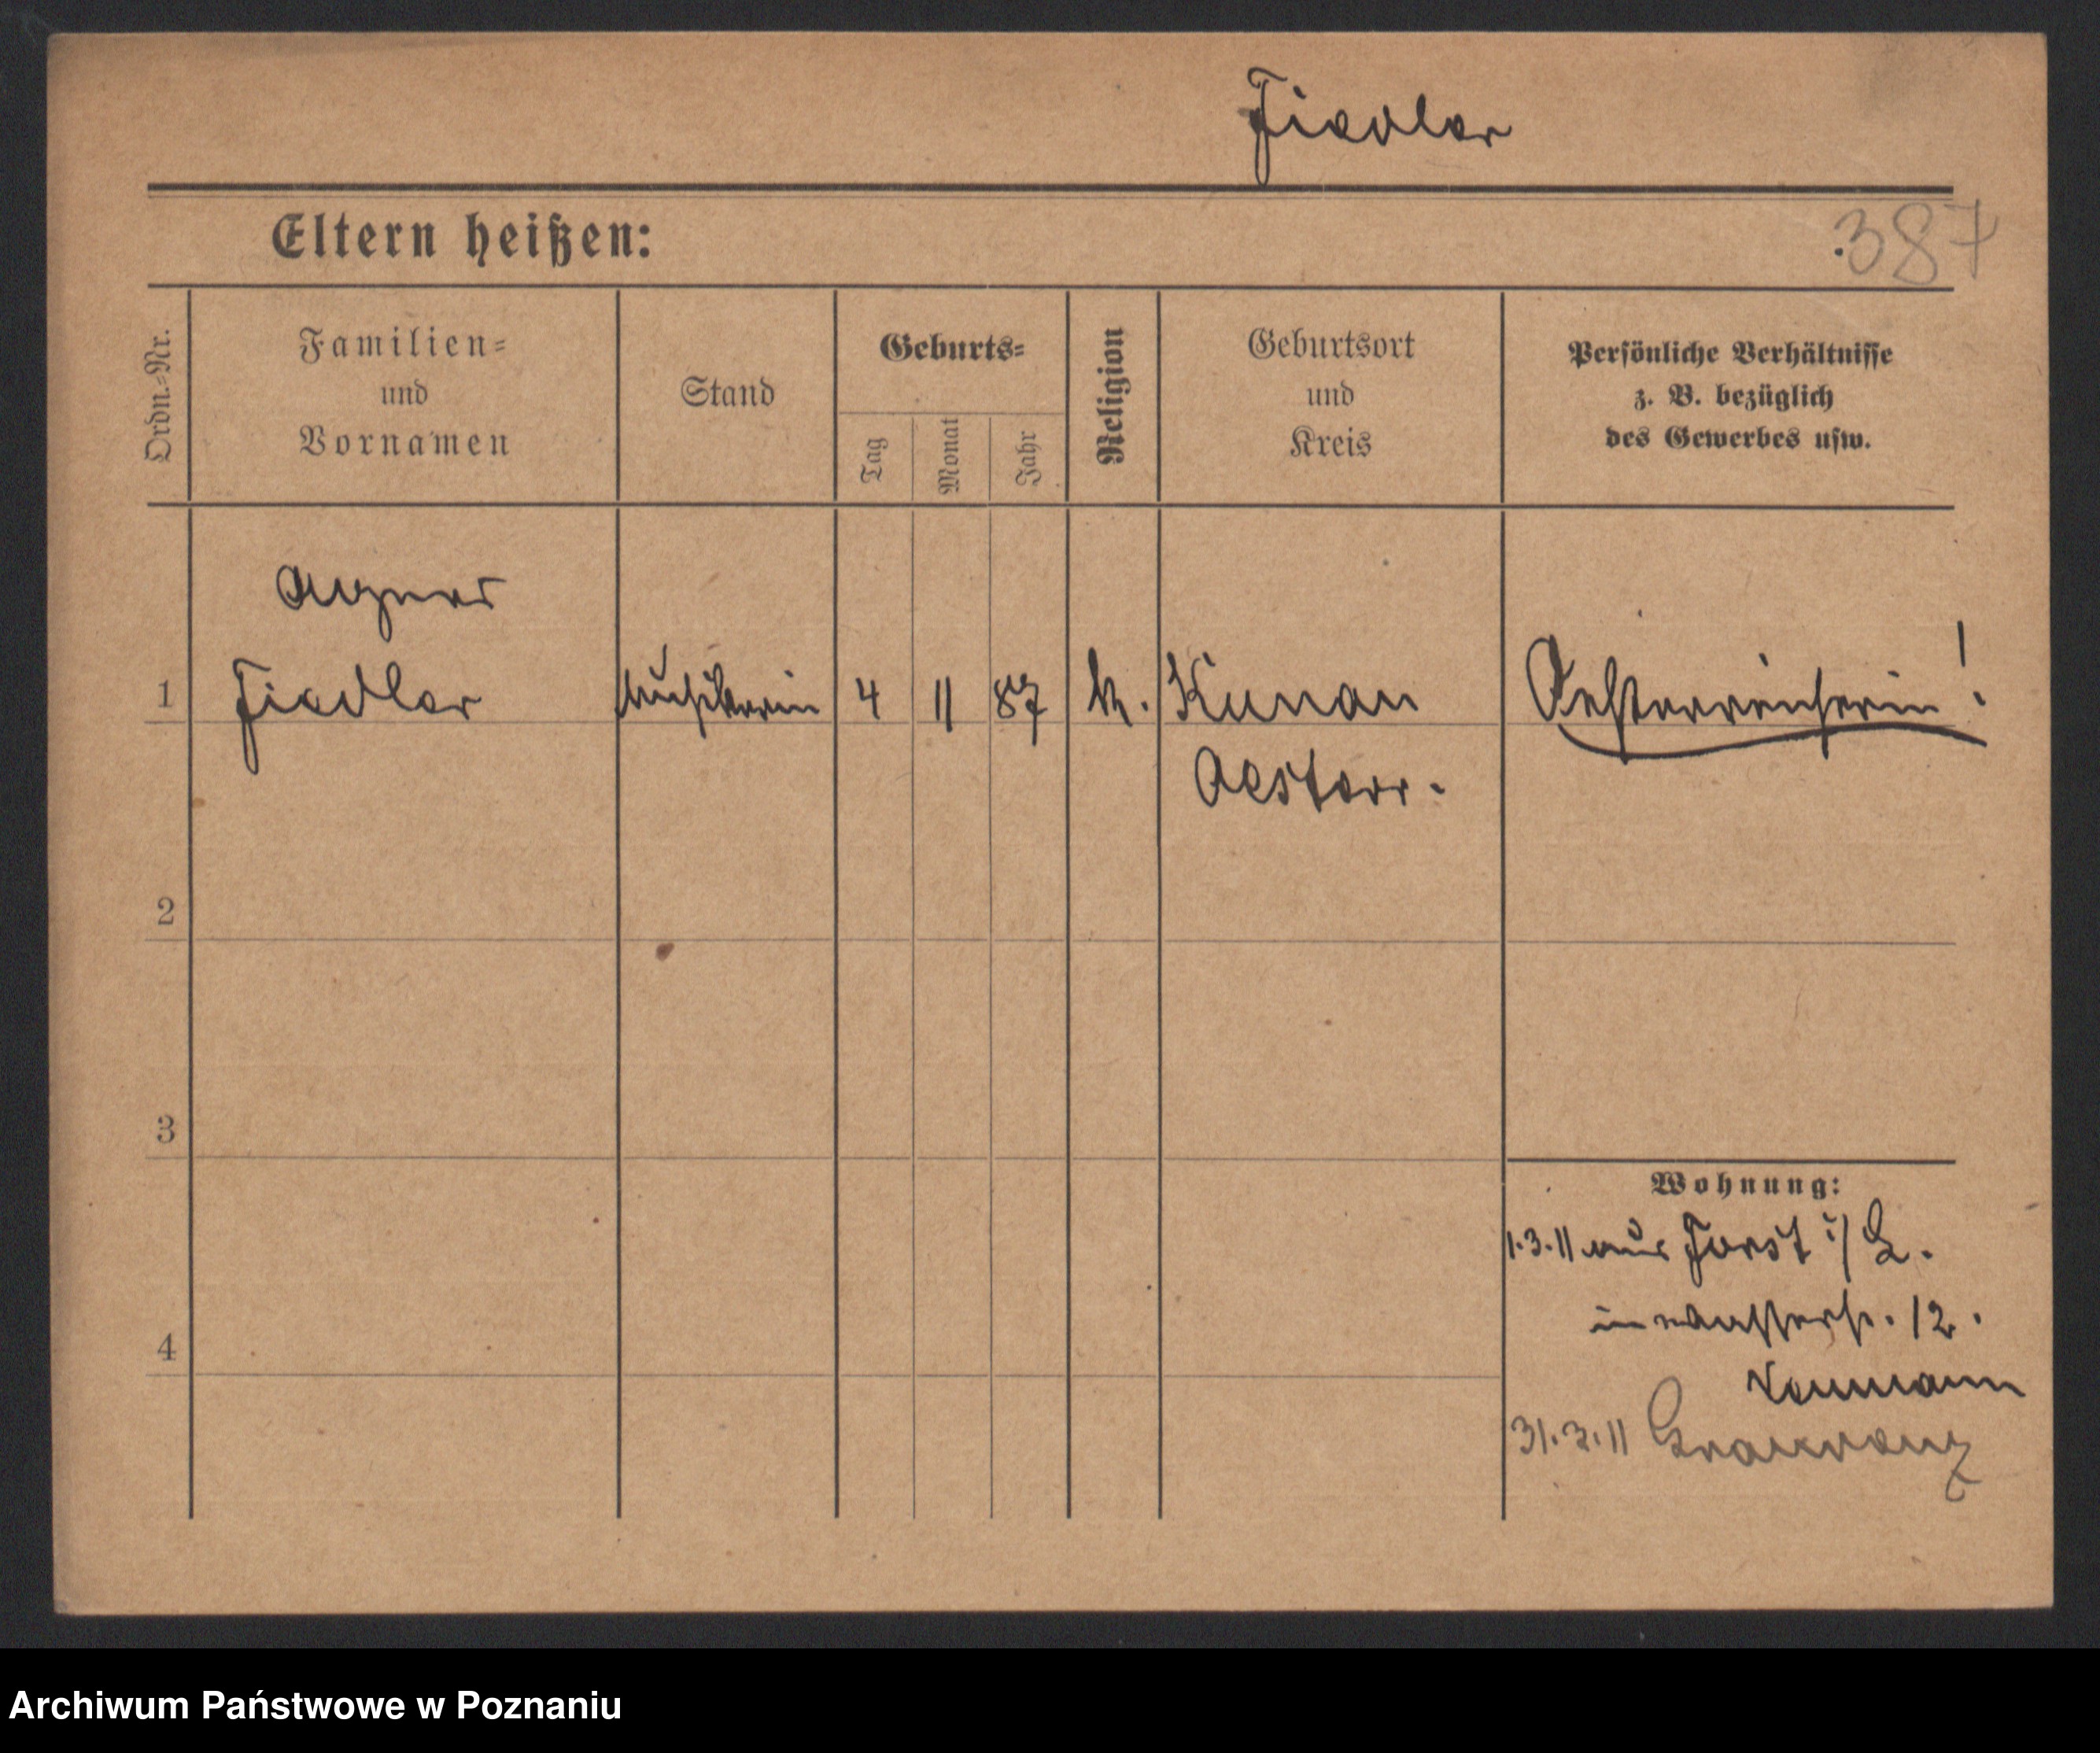 Fiedler
Eltern heißen:
387
Ordn.-Nr.
Familien-
und
Vornamen
Stand
Geburts-
Tag
Monat
Jahr
Religion
Geburtsort
und
Kreis
Persönliche Verhältnisse
z. B. bezüglich
des Gewerbes usw.
Agnes
1 Fiedler Musikerin 4 11 87 k. Kunau Oesterreicherin!
Oesterr.
2
3
4
Wohnung:
1.3.11 aus Forst i/L.
in Wasserstr. 12.
Neumann
31.3.11 Graudenz
Archiwum Państwowe w Poznaniu